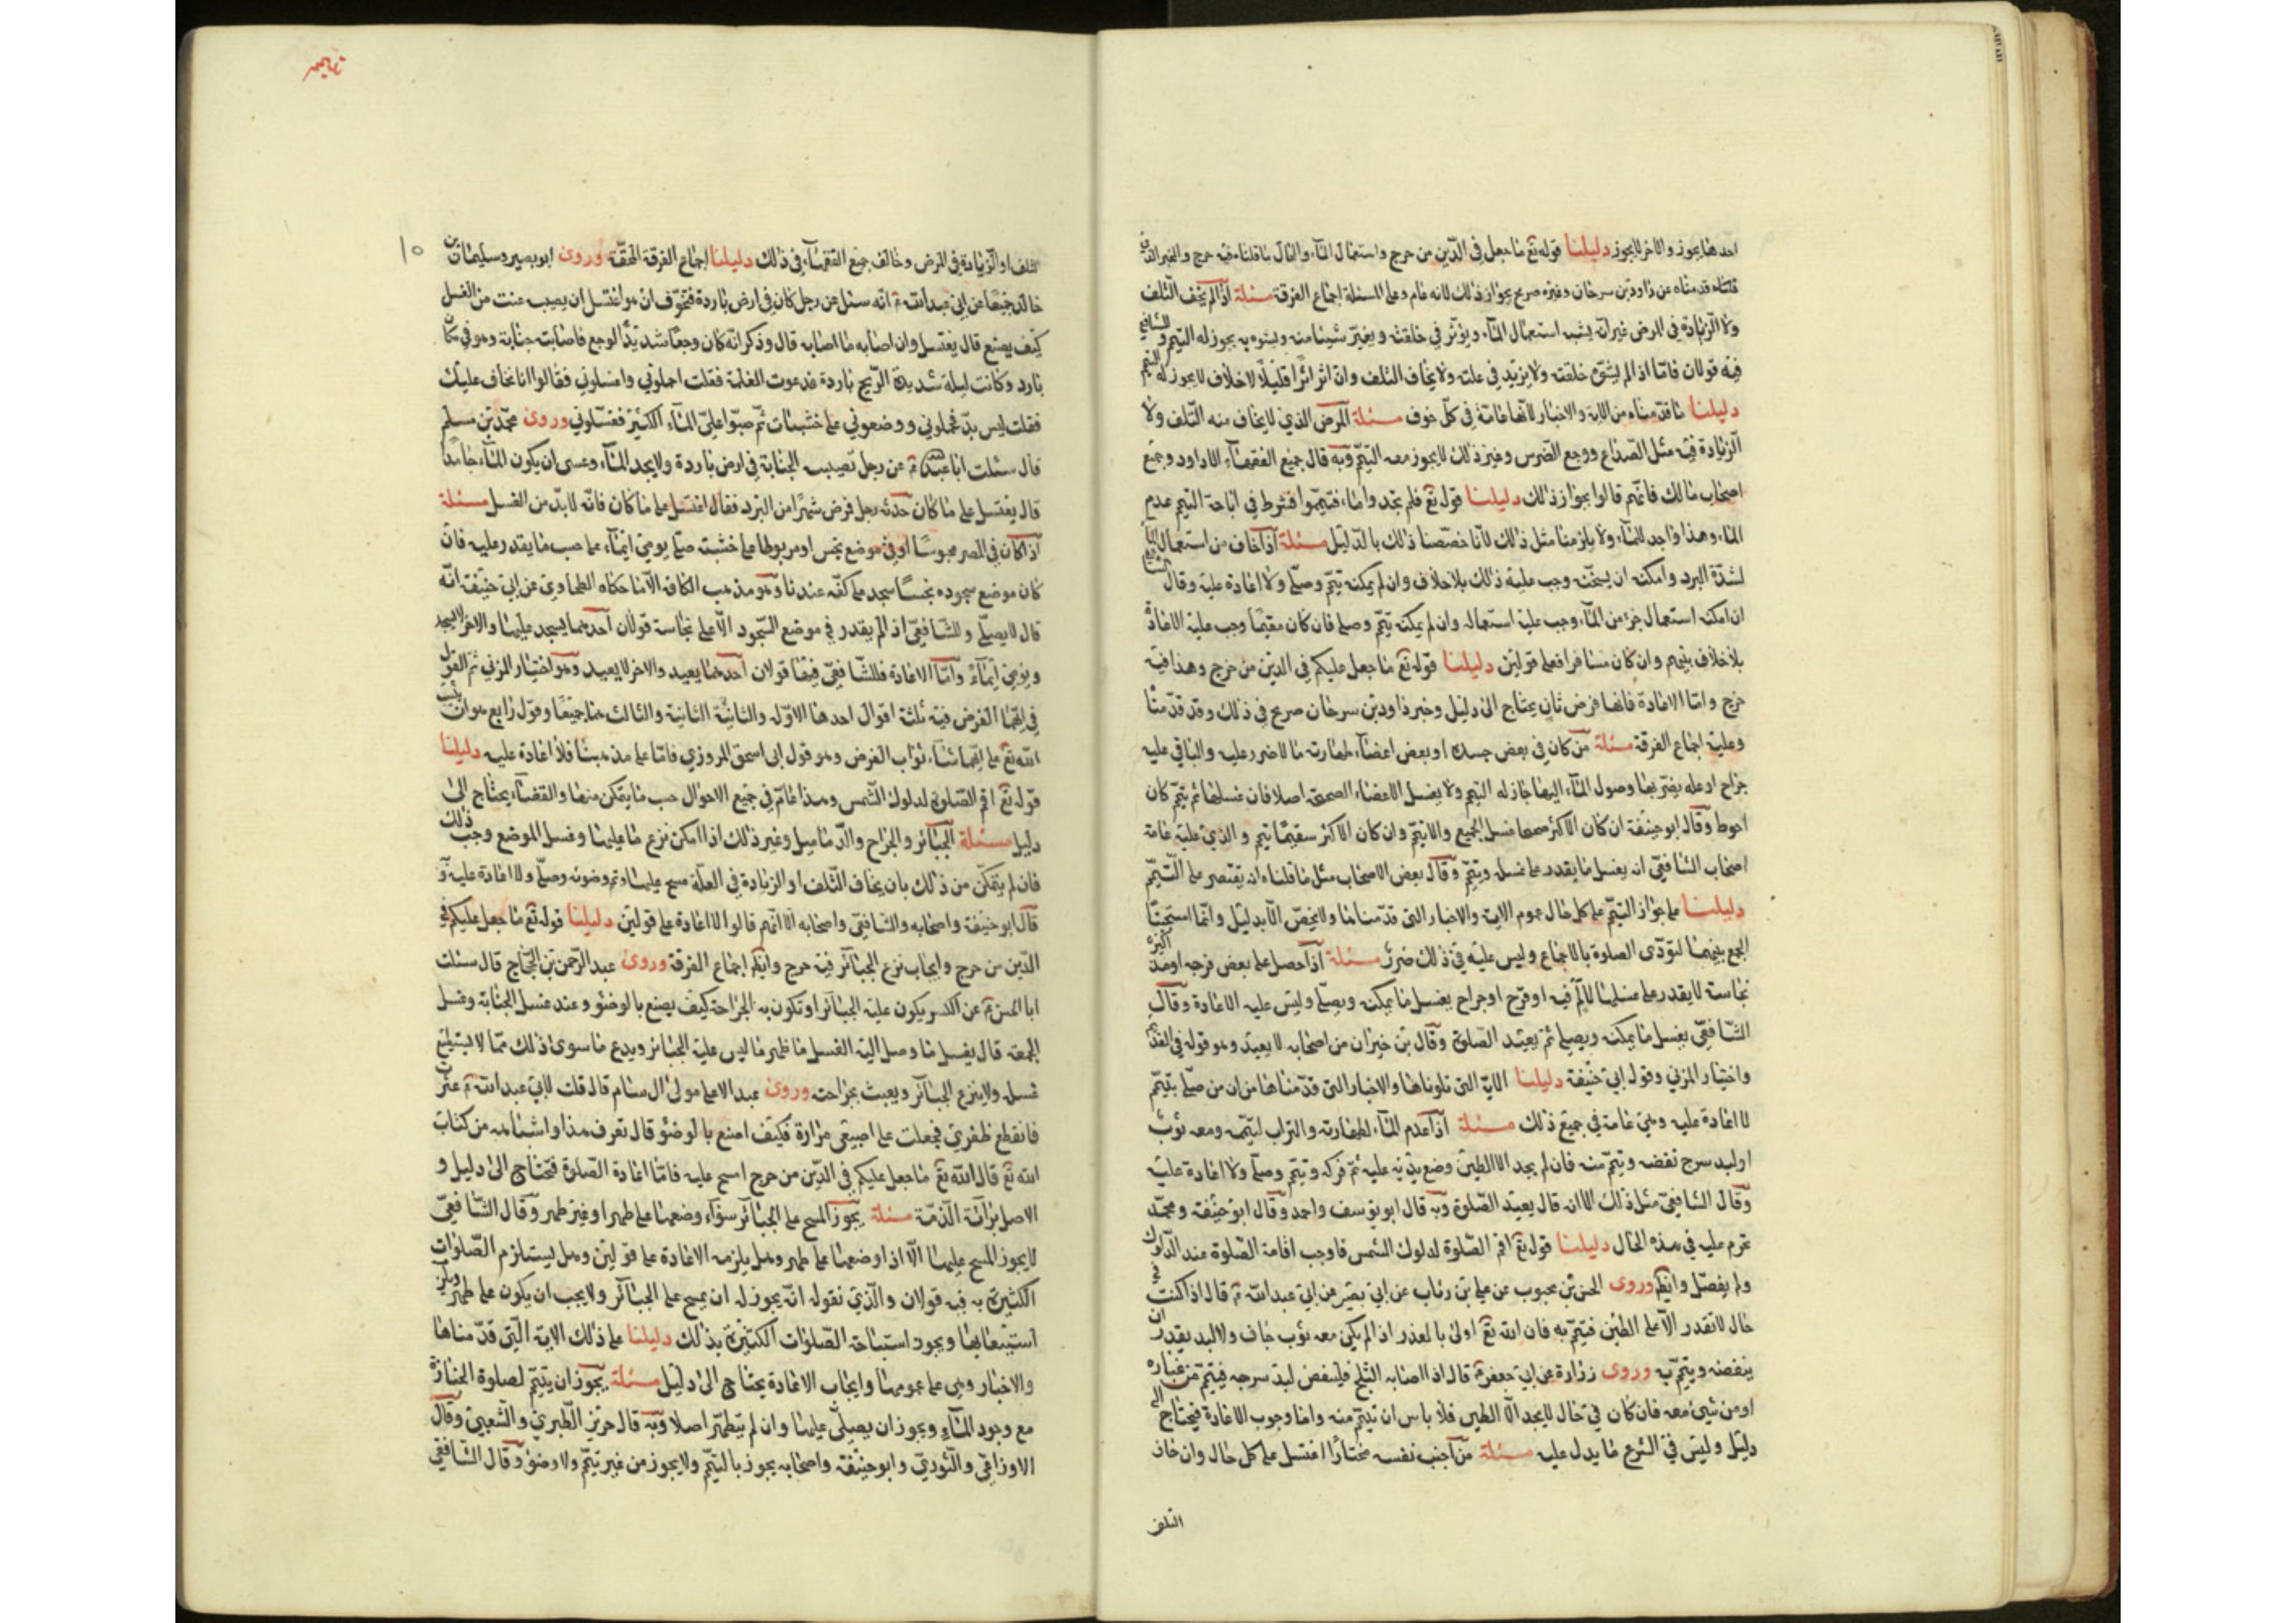 احدهما يجوز والاخر لا يجوز دليلنا قوله تع ما جعل في الدّين من حرج واستعمال المآء والحال ما قلناه فيه حرج والخبر الذ
قلناه قدمناه عن داود بن سرحان وغيره صريح بجواز ذلك لانه عام وعلى المسئلة اجماع الفرقة مسئلة اذا لم يخف التّلف
ولا الزيادة في المرض غير انّه يشينه استعمال المآء ويؤثر في خلقته ويغيّر شيئا منه ويشوه به يجوز له التيمم وللشافعي
فيه قولان فامّا اذا لم يشوّه خلقته ولا يزيد في علته ولا يخاف التلف وان اثر اثرا قليلا لا خلاف لا يجوز له التيمم
دليلنا ما قدّمناه من الاية والاخبار لانّها عامّة في كلّ خوف مسئلة المرض الذي لا يخاف منه التّلف ولا
الزيادة فيه مثل الصّداع ووجع الضّرس وغير ذلك لا يجوز معه التيمّم وبه قال جميع الفقهآء الا داود وجميع
اصحاب مالك فانّهم قالوا بجواز ذلك دليلنا قوله تع فلم تجدوا ماء فتيمّموا فشرط في اباحة التيمم عدم
المآء وهذا واجد للمآء ولا يلزمنا مثل ذلك لانّا خصّصنا ذلك بالدّليل مسئلة اذا خاف من استعمال المآء
لشدّة البرد وامكنه ان يسخّنه وجب عليه ذلك بلا خلاف وان لم يمكنه تيمّم وصلّى ولا اعادة عليه وقال الشافعي
ان امكنه استعمال جزء من المآء وجب عليه استعماله وان لم يمكنه تيمّم وصلى فان كان مقيمًا وجب عليه الاعادة
بلا خلاف بينهم وان كان مسافرا فعلى قولين دليلنا قوله تع ما جعل عليكم في الدين من حرج وهذا فيه
حرج وامّا الاعادة فانها فرض ثان يحتاج الى دليل وخبر داود بن سرحان صريح في ذلك وقد قدّمناه
وعليه اجماع الفرقة مسئلة من كان في بعض جسده او بعض اعضآء طهارته ما لا ضرر عليه والباقي عليه
جراح او علة يضرّ بها وصول المآء اليها جاز له التيمم ولا يغسل الاعضاء الصحيحة اصلا فان غسلها ثم تيمّم كان
احوط وقال ابو حنيفة ان كان الاكثر صحيحا غسل الجميع ولا تيمّم وان كان الاكثر سقيمًا تيمم والذي عليه عامة
اصحاب الشافعيّ انه يغسل ما يقدر على غسله ويتيمّم وقال بعض الاصحاب مثل ما قلناه انه يقتصر على التّيمّم
دليلنا على جواز التيمّم على كل حال عموم الاية والاخبار التي قدّمناها ولا يخصّ الّا بدليل وانّما استحببنا
الجمع بينهما لتؤدّى الصلوة بالاجماع وليس عليه في ذلك ضرر مسئلة اذا حصل على بعض فرجه او مذاكيره
نجاسة لا يقدر على غسلها لالم فيه او قرح او جراح يغسل ما يمكنه ويصلّي وليس عليه الاعادة وقال
الشّافعيّ يغسل ما يمكنه ويصلي ثم يعيد الصّلوة وقال بن خيران من اصحابه لا يعيد وهو قوله في القديم
واختيار المزني وقول ابي حنيفة دليلنا الاية التي تلوناها والاخبار التي قدّمناها من ان من صلّى بتيمّم
لا اعادة عليه وهي عامة في جميع ذلك مسئلة اذا عدم المآء لطهارته والتراب لتيمّمه ومعه ثوب
او لبد سرج نفضه وتيمّم منه فان لم يجد الا الطين وضع يديه عليه ثمّ فركه وتيمّم وصلّى ولا اعادة عليه
وقال الشافعيّ مثل ذلك الا انه قال يعيد الصّلوة وبه قال ابو يوسف واحمد وقال ابو حنيفة ومحمّد
تحرم عليه في هذه الحال دليلنا قوله تع اقم الصّلوة لدلوك الشمس فاوجب اقامة الصّلوة عند الدلوك
ولم يفصّل وايضا وروى الحسن بن محبوب عن علي بن رئاب عن ابي بصير عن ابي عبد الله ع قال اذا كنت في
حال لا تقدر الّا على الطين فتيمّم به فان الله تع اولى بالعذر اذا لم يكن معه ثوب جاف ولا لبد يقدر ان
ينفضه ويتيمّم به وروى زرارة عن ابي جعفر ع قال اذا اصابه الثلج فلينفض لبد سرجه فيتيمّم من غباره
او من شيء معه فان كان في حال لا يجد الّا الطين فلا باس ان تيمّم منه وامّا وجوب الاعادة فيحتاج الى
دليل وليس في الشرع ما يدل عليه مسئلة من اجنب نفسه مختارًا اغتسل على كل حال وان خاف
التلف
تيمم
١٥
التلف او الزيادة في المرض وخالف جميع الفقهآء في ذلك دليلنا اجماع الفرقة المحقّة وروى ابو بصير وسليمان بن
خالد جميعًا عن ابي عبد الله ع انّه سئل عن رجل كان في ارض باردة فتخوّف ان هو اغتسل ان يصيبه عنت من الغسل
كيف يصنع قال يغتسل وان اصابه ما اصابه قال وذكر انّه كان وجعًا شديد الوجع فاصابته جنابة وهو في مكان
بارد وكانت ليلة شديدة الرّيح باردة فدعوت الغلمة فقلت احملوني واغسلوني فقالوا انا نخاف عليك
فقلت ليس بدّ فحملوني ووضعوني على خشبات ثمّ صبّوا عليّ المآء الكثير فغسّلوني وروى محمّد بن مسلم
قال سئلت ابا عبد الله ع عن رجل تصيبه الجنابة في ارض باردة ولا يجد المآء وعسى ان يكون المآء جامدًا
قال يغتسل على ما كان حدّثه رجل فمرض شهرًا من البرد فقال اغتسل على ما كان فانّه لا بدّ من الغسل مسئلة
اذا كان في المصر محبوسًا او في موضع نجس او مربوطا على خشبة صلّى يومئ ايمآء على حسب ما يقدر عليه فان
كان موضع سجوده نجسًا سجد على كفّه عندنا وهو مذهب الكافة الّا ما حكاه الطحاوي عن ابي حنيفة انّه
قال لا يصلّي وللشّافعيّ اذا لم يقدر في موضع السّجود الّا على نجاسة قولان احدهما يسجد عليها والاخر لا يسجد
ويومئ ايمآءً وامّا الاعادة فللشّافعيّ فيها قولان احدهما يعيد والاخر لا يعيد وهو اختيار المزني ثم القول
في ايّهما الفرض فيه ثلثة اقوال احدها الاوّلة والثانية الثانية والثالث هما جميعًا وقول رابع هو ان يثيب
الله تع على ايهما شآء ثواب الفرض وهو قول ابي اسحق المروزي فامّا على مذهبنا فلا اعادة عليه دليلنا
قوله تع اقم الصّلوة لدلوك الشّمس وهذا عامّ في جميع الاحوال حسب ما يتمكن منها والقضآء يحتاج الى
دليل مسئلة الجبائر والجراح والدّماميل وغير ذلك اذا امكن نزع ما عليها وغسل الموضع وجب ذلك
فان لم يتمكّن من ذلك بان يخاف التّلف او الزيادة في العلّة مسح عليها وتم وضوئه وصلّى ولا اعادة عليه و
قال ابو حنيفة واصحابه والشافعيّ واصحابه الا انّهم قالوا الاعادة على قولين دليلنا قوله تع ما جعل عليكم في
الدّين من حرج وايجاب نزع الجبائر فيه حرج وايضا اجماع الفرقة وروى عبد الرّحمن بن الحجّاج قال سئلت
ابا الحسن ع عن الكسر يكون عليه الجبائر او تكون به الجراحة كيف يصنع بالوضوء وعند غسل الجنابة وغسل
الجمعة قال يغسل ما وصل اليه الغسل ما ظهر ما ليس عليه الجبائر ويدع ما سوى ذلك ممّا لا يستطيع
غسله ولا ينزع الجبائر ويعبث بجراحته وروى عبد الاعلى مولى ال سام قال قلت لابي عبد الله ع عثرت
فانقطع ظفري فجعلت على اصبعي مرارة فكيف اصنع بالوضوء قال تعرف هذا واشباهه من كتاب
الله تع قال الله تع ما جعل عليكم في الدّين من حرج امسح عليه فامّا اعادة الصّلوة فتحتاج الى دليل و
الاصل برائة الذّمّة مسئلة يجوز المسح على الجبائر سوآء وضعها على طهر او غير طهر وقال الشّافعيّ
لا يجوز المسح عليها الّا اذا وضعها على طهر وهل يلزمه الاعادة على قولين وهل يستلزم الصّلوات
الكثيرة به فيه قولان والّذي نقوله انّه يجوز له ان يمسح على الجبائر ولا يجب ان يكون على طهر ويلزم
استيعابها ويجوز استباحة الصّلوات الكثيرة بذلك دليلنا على ذلك الاية الّتي قدّمناها
والاخبار وهي على عمومها وايجاب الاعادة يحتاج الى دليل مسئلة يجوز ان يتيمّم لصلوة الجنازة
مع وجود المآء ويجوز ان يصلّي عليها وان لم يتطهّر اصلا وبه قال جرير الطّبري والشّعبيّ وقال
الاوزاعي والثّوريّ وابو حنيفة واصحابه يجوز بالتيمّم ولا يجوز من غير تيمّم ولا وضوء وقال الشّافعيّ